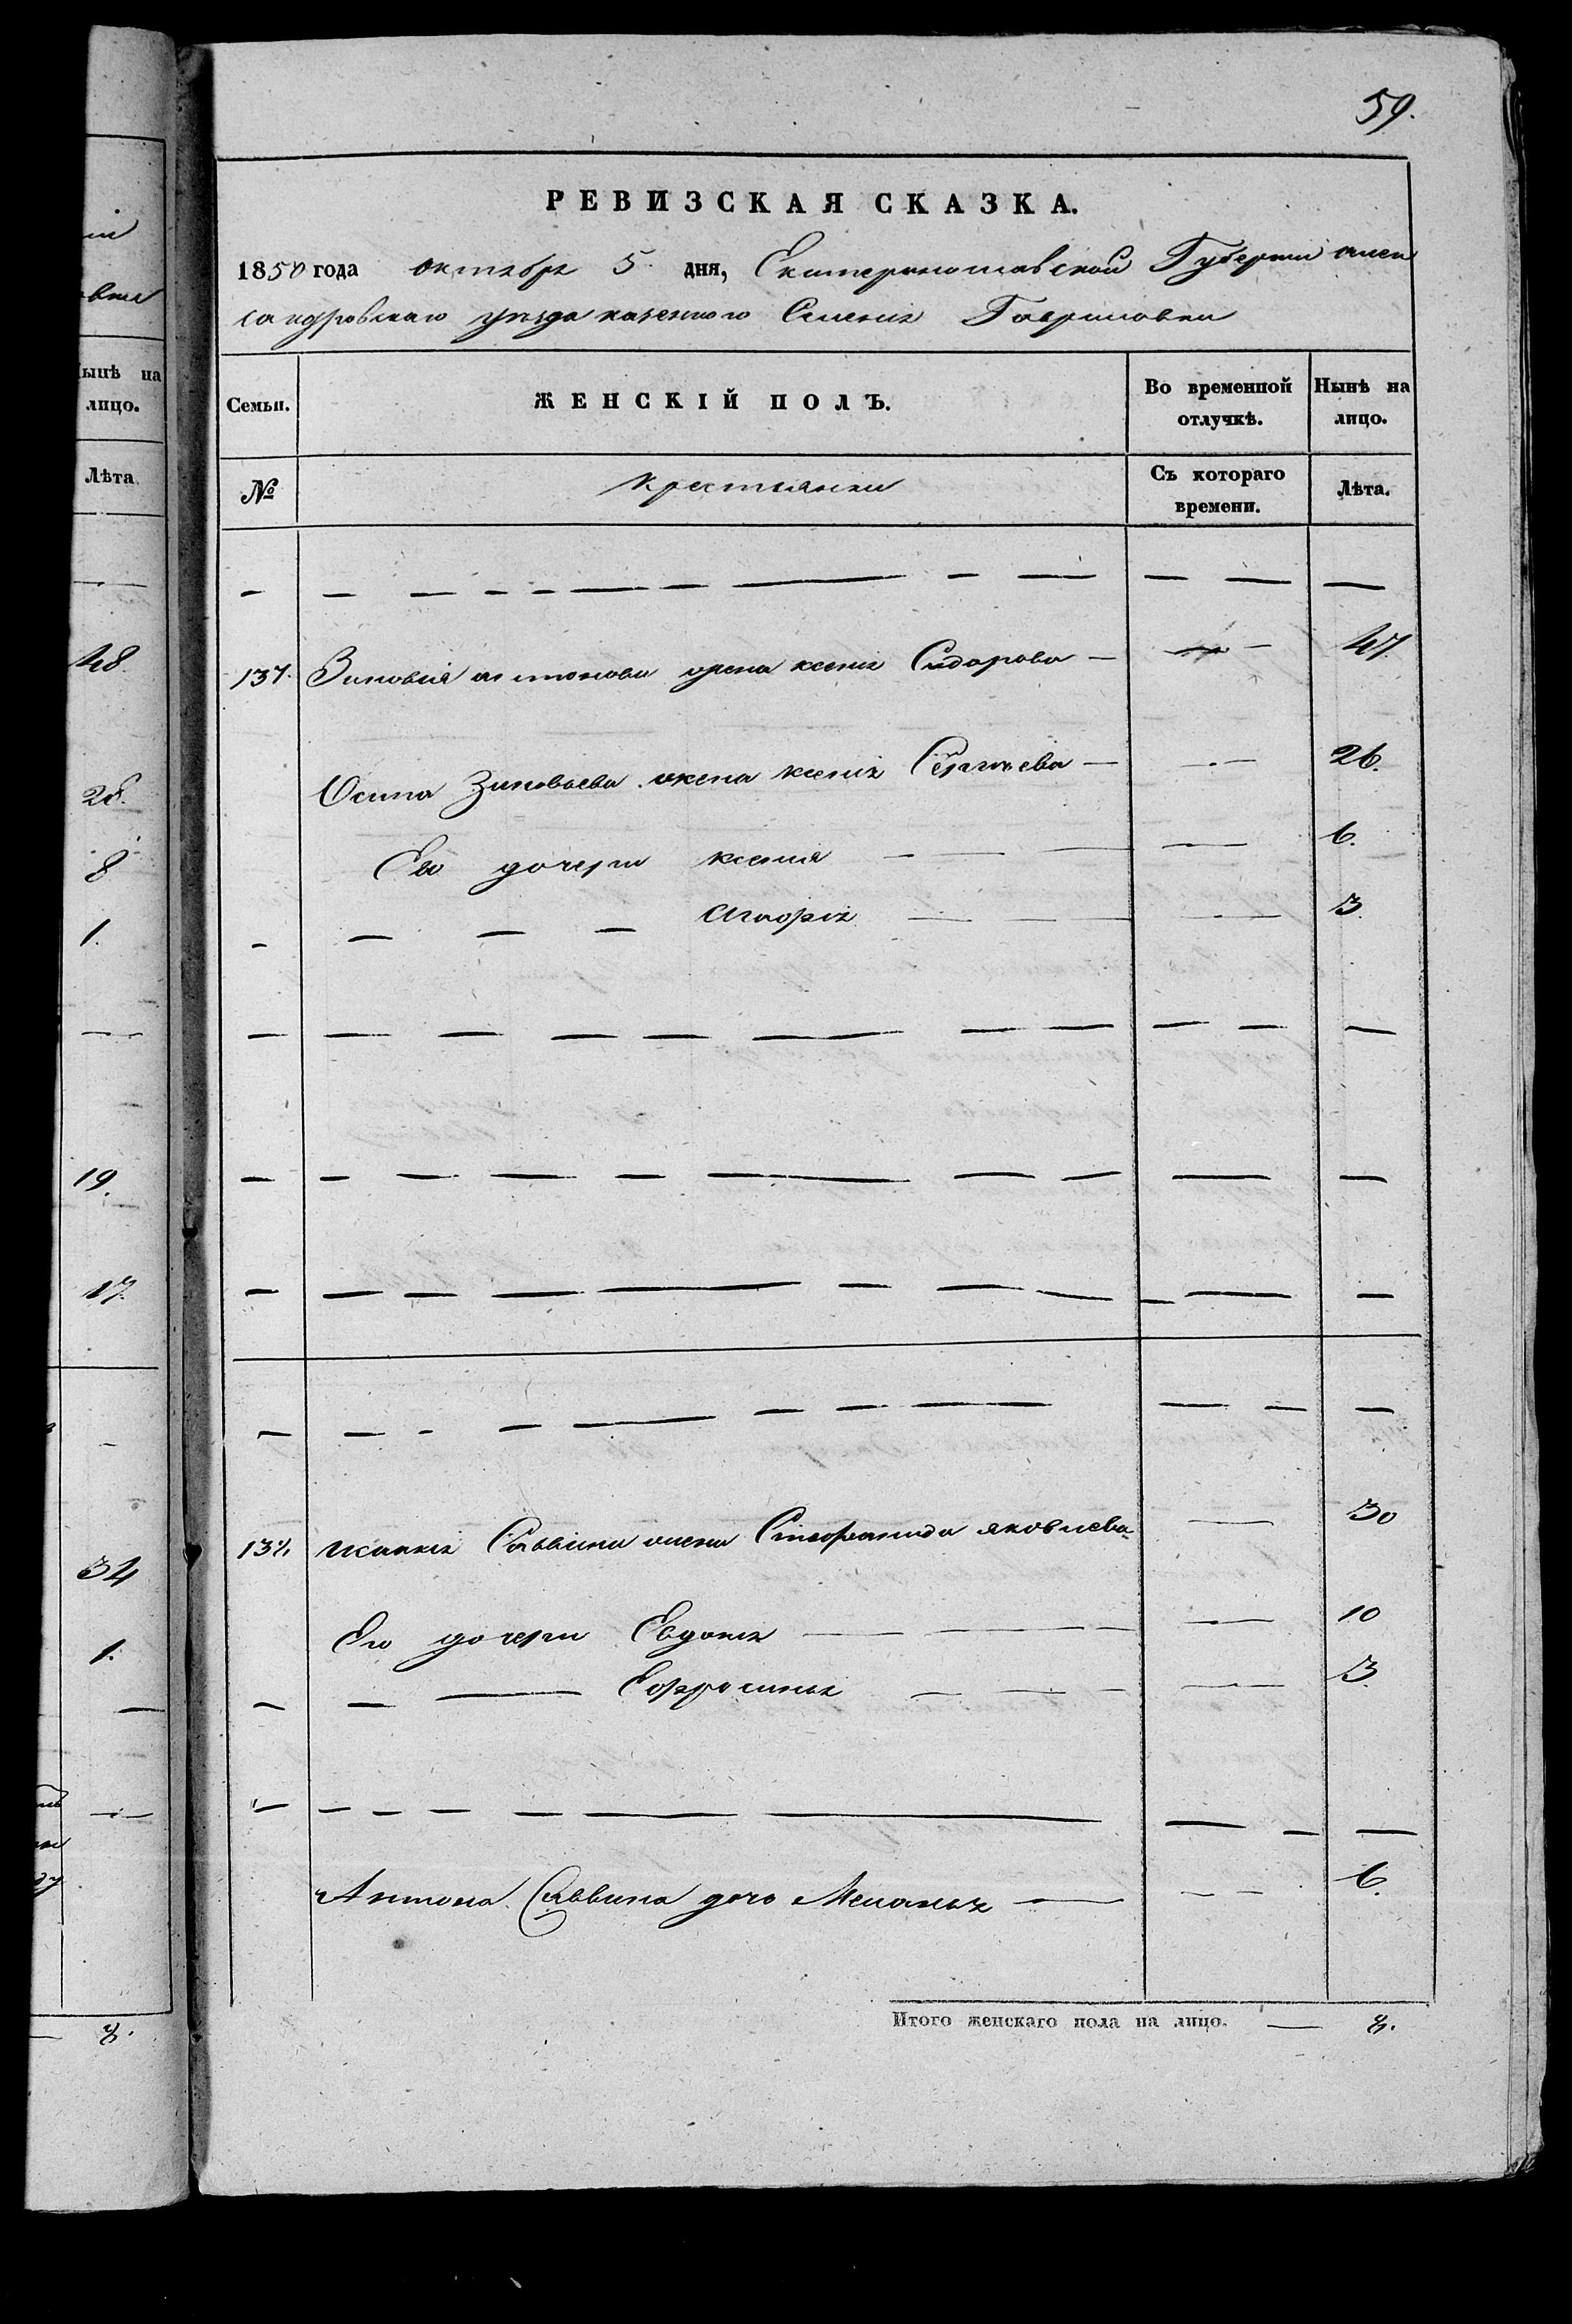 59.
РЕВИЗСКАЯ СКАЗКА.
1850 года октября 5 дня, Екатеринославской Губернiи Алек
сандровскаго уѣзда казеннаго Селенiя Гавриловки
Семьи.
ЖЕНСКІЙ ПОЛЪ.
Во временной отлучкѣ.
Нынѣ на лицо.
№
Крестьянки
Съ котораго времени.
Лѣта.
137. Зиновія Антонова жена Ксенія Сидорова — 47.
Осипа Зиновьева жена Ксенія Сергѣева — 26.
Его дочери Ксенія 6.
Агафія 3.
Исакія Саввина жена Степанида Яковлева 30
Его дочери Евдокія 10
Ефросинья 3.
Антона Саввина дочь Меланья 6.
Итого женскаго пола на лицо. — 8.
ынѣ на
лицо.
Лѣта
48
28.
8
1.
19.
17.
34
1.
8.